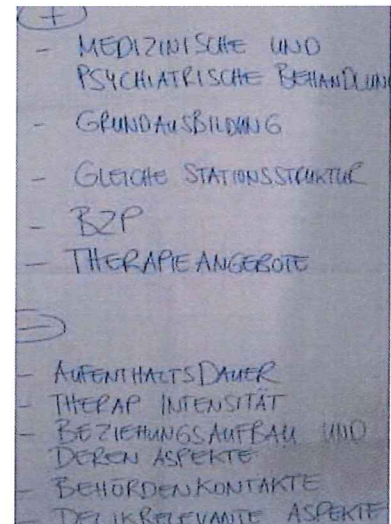 +
- MEDIZINISCHE UND
PSYCHIATRISCHE BEHANDLUNG
- GRUNDAUSBILDUNG
- GLEICHE STATIONSSTRUKTUR
- BZP
- THERAPIEANGEBOTE
-
- AUFENTHALTSDAUER
- THERAP INTENSITÄT
- BEZIEHUNGSAUFBAU UND
DEREN ASPEKTE
- BEHÖRDENKONTAKTE
- DELIKRELEVANTE ASPEKTE